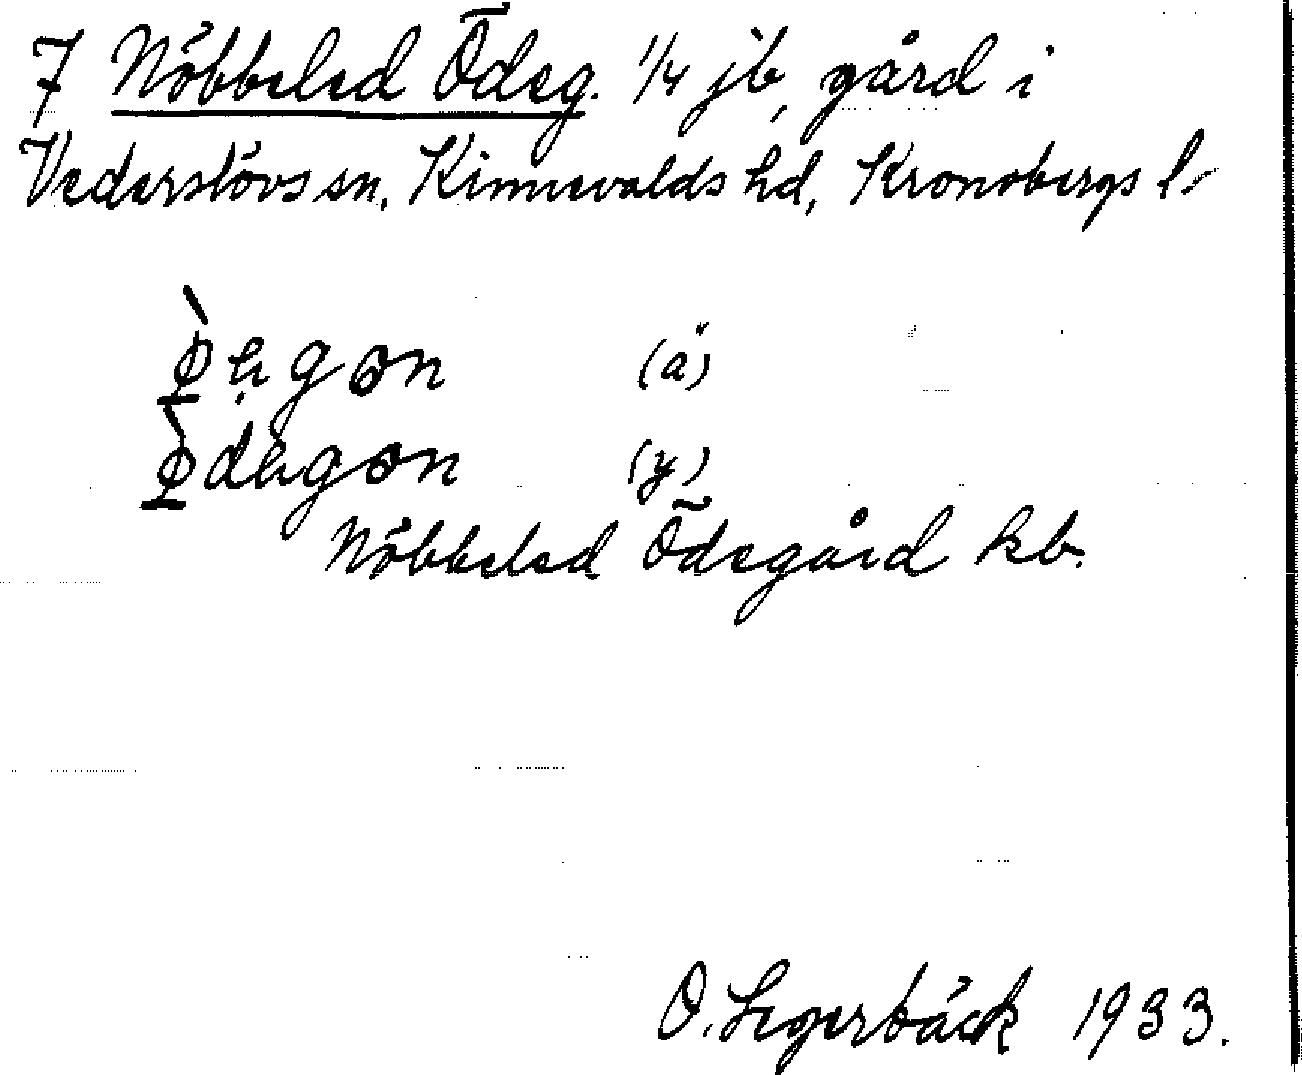 7 Nöbbeled Ödeg. 1/4 jb, gård i
Vederslövs sn, Kinnevalds hd, Kronobergs l.
(ä)
(y)
Nöbbeled Ödegård kb.
O. Segerbäck 1933.